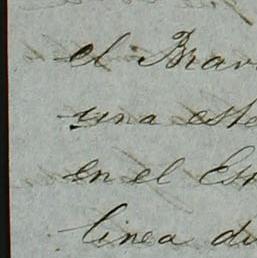 el Brav
una este
en el Es
linea du